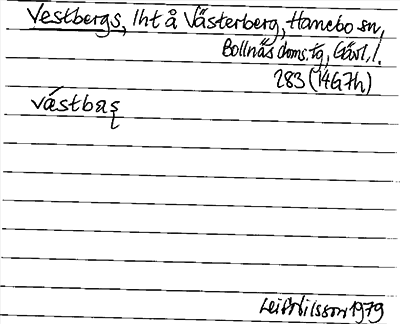 Vestbergs, lht å Västerberg, Hanebo sn,
Bollnäs doms.tg, Gävl. l.
283 (14G7h)
västbaʂ
Leif Nilsson 1979